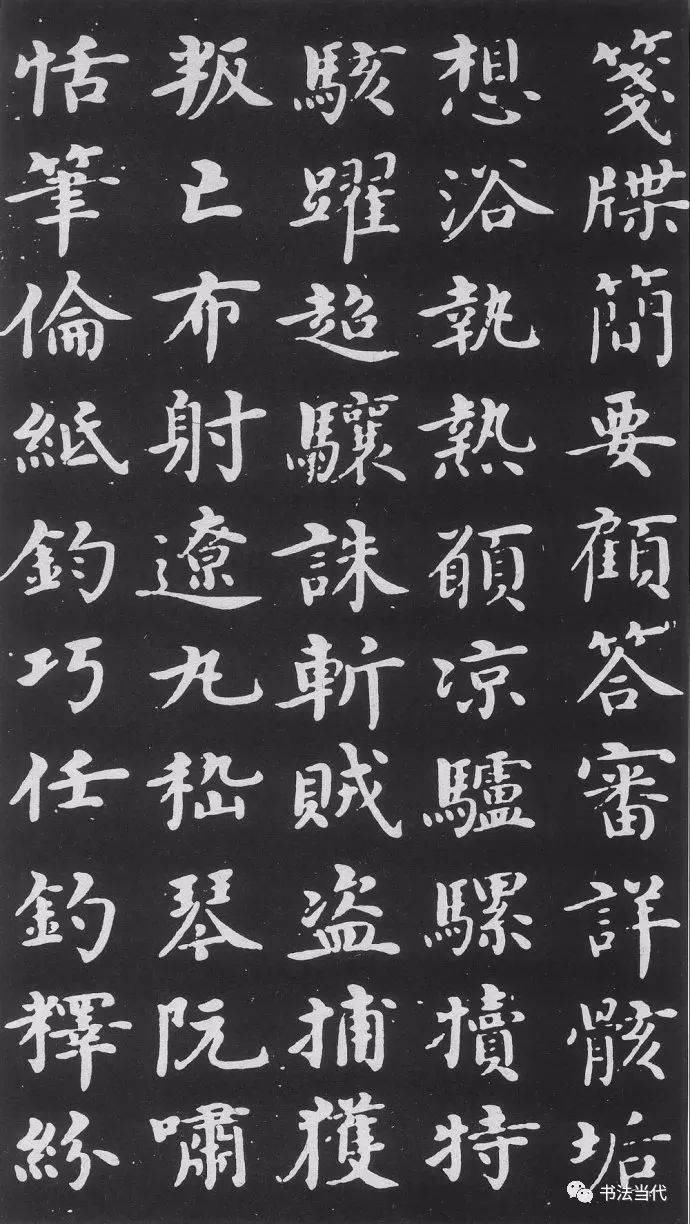 箋牒簡要顧答審詳骸垢
想浴執熱願凉驢騾犢特
駭躍超驤誅斬賊盗捕獲
叛亡布射遼丸嵇琴阮嘯
恬筆倫紙鈞巧任釣釋紛
书法当代